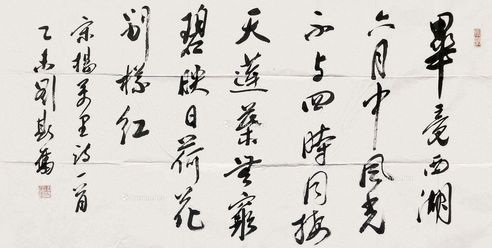 畢竟西湖
六月中風光
不与四時同接
天蓮葉無窮
碧映日荷花
别樣紅
宋楊萬里詩一首
乙未劉斯奮